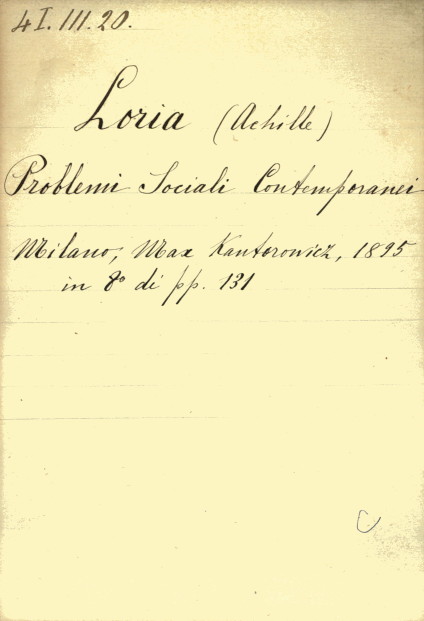 4I.III.20.
Loria (Achille)
Problemi Sociali Contemporanei
Milano, Max Kantorowicz, 1895
in 8° di pp. 131
C